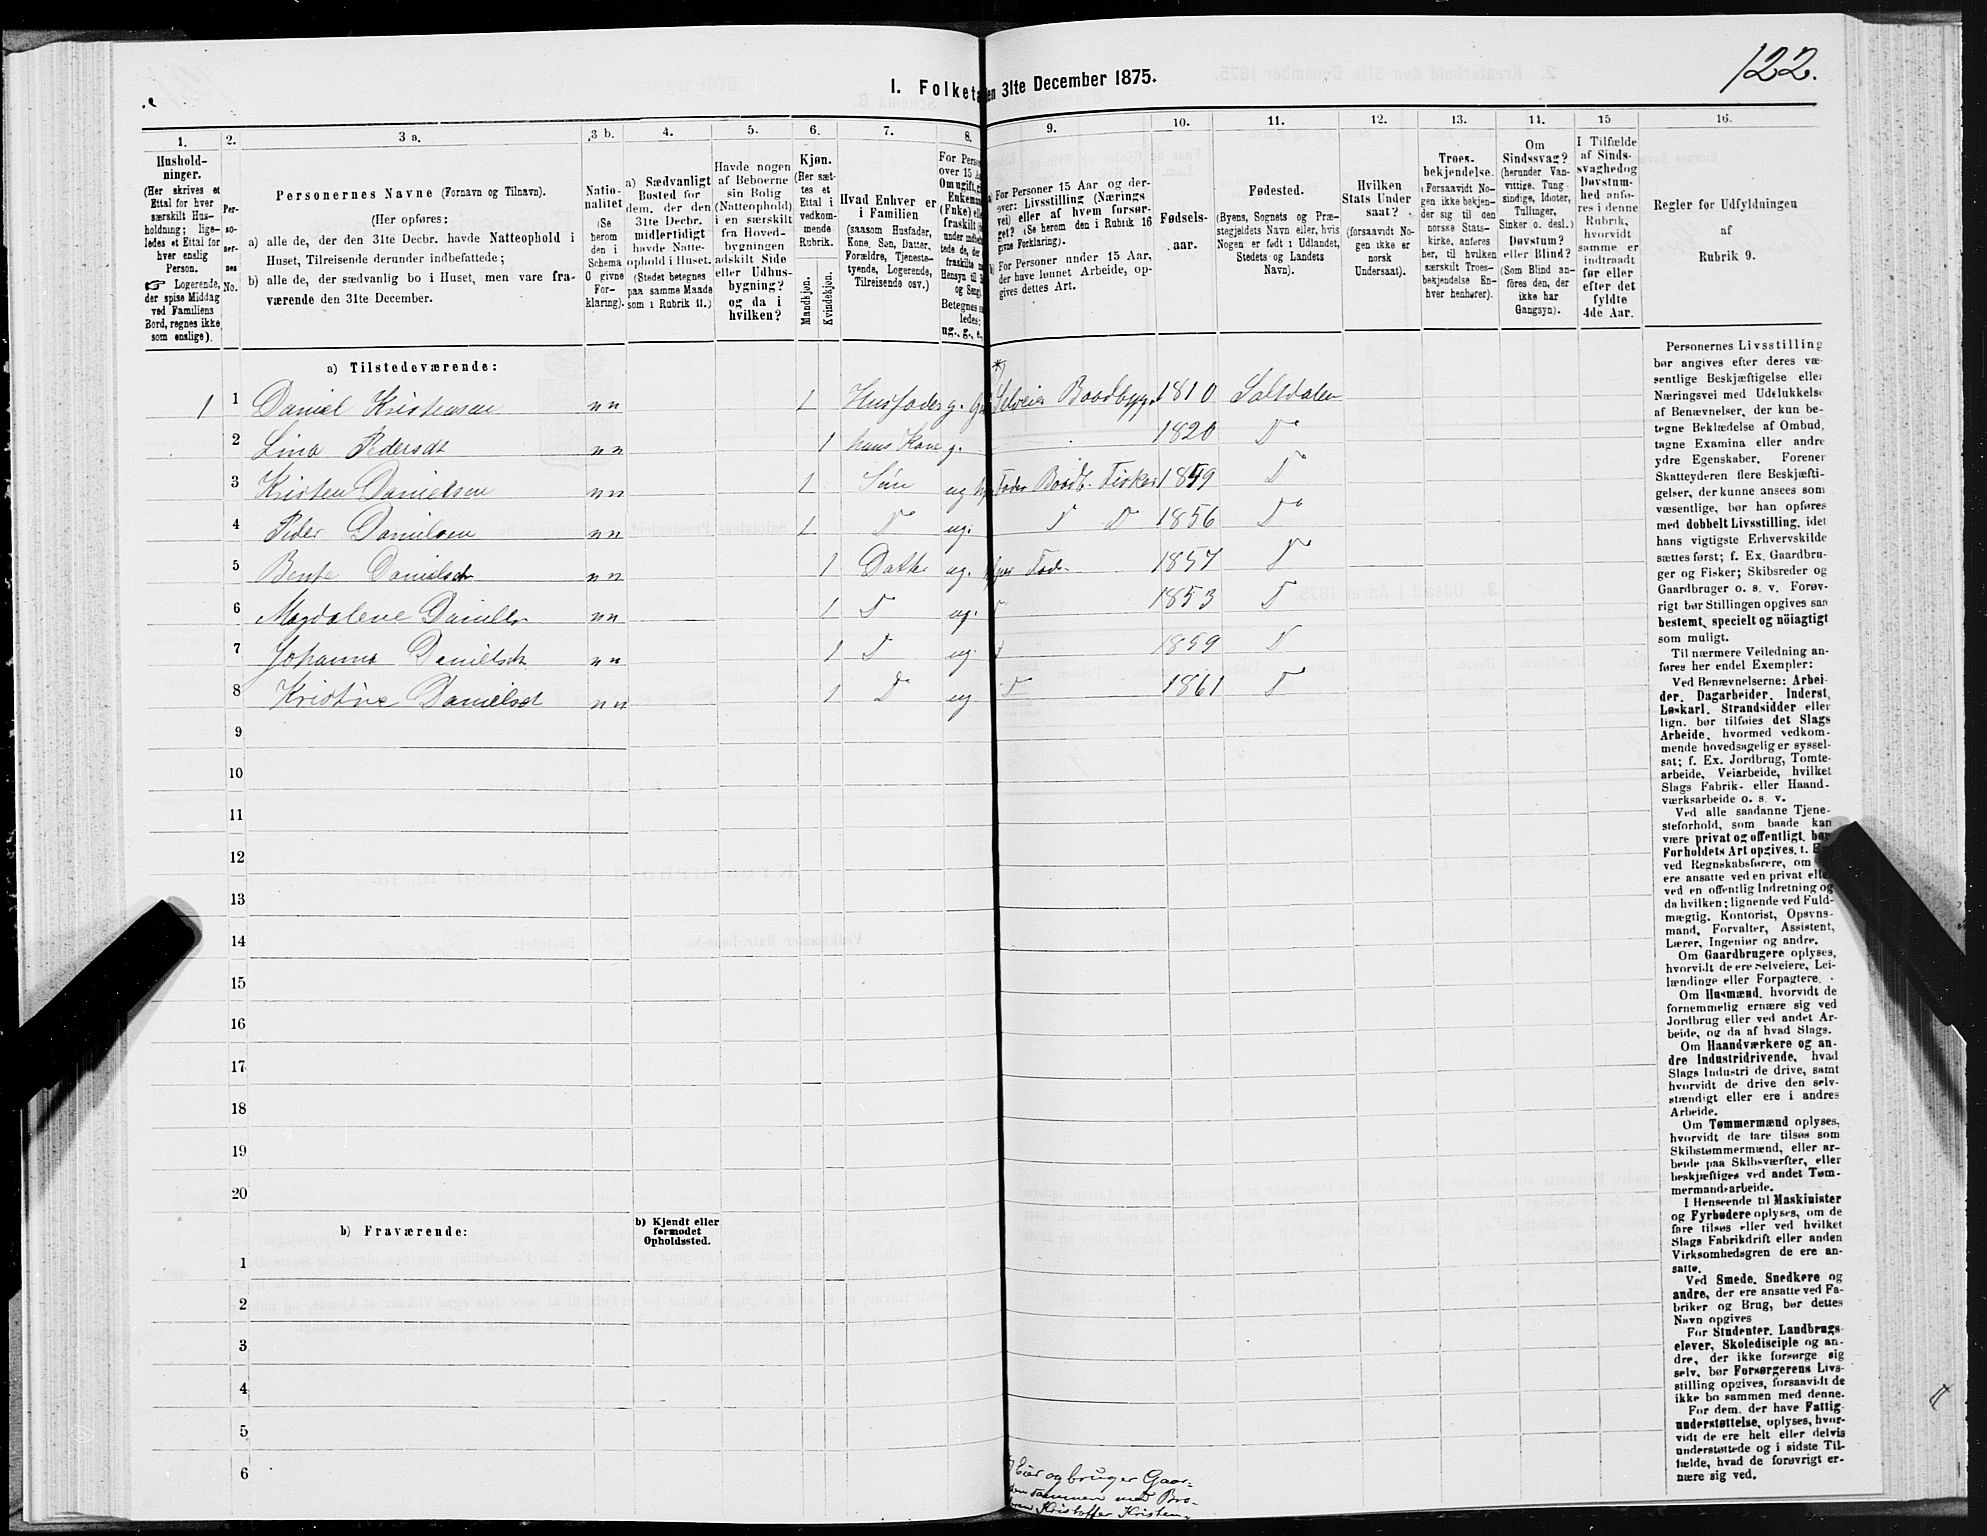 122.
I. Folketa
en 31te December 1875.
1.
2.
3 a.
3 b.
4.
5.
6.
7.
8.
9.
10.
11.
12.
13.
14.
15
16.
Hushold-
ninger.
(Her skrives et
Ettal for hver
særskilt Hus-
holdning; lige-
ledes et Ettal for
hver enslig
Person.
☞ Logerende,
der spise Middag
ved Familiens
Bord, regnes ikke
som enslige).
Per-
so-
ner-
nes
No.
Personernes Navne (Fornavn og Tilnavn).
(Her opføres:
a) alle de, der den 31te Decbr. havde Natteophold i
Huset, Tilreisende derunder indbefattede;
b) alle de, der sædvanlig bo i Huset, men vare fra-
værende den 31te December.
Natio-
nalitet
(Se
herom
den i
Schema
C givne
For-
klaring).
a) Sædvanligt
Bosted for
dem, der den
31te Decbr.
midlertidigt
havde Natte-
ophold i Huset.
(Stedet betegnes
paa samme Maade
som i Rubrik 11.)
Havde nogen
af Beboerne
sin Bolig
(Natteophold)
i en særskilt
fra Hoved-
bygningen
adskilt Side
eller Udhus-
bygning?
og da i
hvilken?
Kjøn.
(Her sæt-
tes et
Ettal i
vedkom-
mende
Rubrik.
Mandkjøn.
Kvindekjøn.
Hvad Enhver er
i Familien
(saasom Husfader,
Kone, Søn, Datter,
Forældre, Tjeneste-
tyende, Logerende,
Tilreisende osv.)
For Perso
over 15 A
Om ugift, gi
Enkemand
(Enke) elle
fraskilt
under indbe
tede de, der
fraskilte
Hensyn til B
og Seng)
Betegnes s
ledes:
ug., g., e,
For Personer 15 Aar og der-
over: Livsstilling (Nærings
vei) eller af hvem forsør-
get? (Se herom den i Rubrik 16
givne Forklaring).
For Personer under 15 Aar,
der have lønnet Arbeide, op-
gives dettes Art.
Fødsels-
aar.
Fødested.
(Byens, Sognets og Præ-
stegjeldets Navn eller, hvis
Nogen er født i Udlandet,
Stedets og Landets
Navn).
Hvilken
Stats Under
saat?
(forsaavidt No-
gen ikke er
norsk
Undersaat).
Troes-
bekjendelse.
(Forsaavidt No-
gen ikke bekjen-
der sig til den
norske Stats-
kirke, anføres
her, til hvilken
særskilt Troes-
bekjendelse En-
hver henhører).
Om
Sindssvag?
(herunder Van-
vittige, Tung-
sindige, Idioter,
Tullinger,
Sinker o. desl.)
Døvstum?
eller Blind?
(Som Blind an-
føres den, der
ikke har
Gangsyn).
I Tilfælde
af Sinds-
svaghed og
Døvstum-
hed anfø-
res i denne
Rubrik,
hvorvidt
samme er
indtraadt
før eller
efter det
fyldte
4de Aar.
Regler for Udfyldningen
af
Rubrik 9.
a) Tilstedeværende:
1 1 Daniel Kristensen nn 1 Husfader g. Selveier Baadbygg. 1810 Saltdalen
2 Lina Pedersdt nn 1 hans Kone g. 1820 D°
3 Kristen Danielsen nn 1 Søn ug Fader Baadb. Fisker 1849 D
4 Peder Danielsen nn 1 D° ug. D D 1856 D°
5 Bente Danielsdt nn 1 Datter ug. Fader 1857 D
6 Magdalene Danielsdt nn 1 D ug. 1853 D
7 Johanna Danielsdt nn 1 D ug. 1859 D
8 Kristine Danielsdt nn 1 D ug D 1861 D
9
10
11
12
13
14
15
16
17
18
19
20
b) Fraværende:
b) Kjendt eller
formodet
Opholdssted.
1
2
3
4
5
6
Eier og bruger Gaar-
den sammen med Bro-
deren Kristoffer Kristen-
Personernes Livsstilling
bør angives efter deres væ-
sentlige Beskjæftigelse eller
Næringsvei med Udelukkelse
af Benævnelser, der kun be-
tegne Beklædelse af Ombud,
tagne Examina eller andre
ydre Egenskaber. Forener
Skatteyderen flere Beskjæfti-
gelser, der kunne ansees som
væsentlige, bør han opføres
med dobbelt Livsstilling, idet
hans vigtigste Erhvervskilde
sættes først; f. Ex. Gaardbru-
ger og Fisker; Skibsreder og
Gaardbruger o. s. v. Forøv-
rigt bør Stillingen opgives saa
bestemt, specielt og nöiagtigt
som muligt.
Til nærmere Veiledning an-
føres her endel Exempler:
Ved Benævnelserne: Arbei-
der, Dagarbeider, Inderst,
Løskarl, Strandsidder eller
lign. bør tilføies det Slags
Arbeide, hvormed vedkom-
mende hovedsagelig er syssel-
sat; f. Ex. Jordbrug, Tomte-
arbeide, Veiarbeide, hvilket
Slags Fabrik- eller Haand-
værksarbeide o. s. v.
Ved alle saadanne Tjene-
steforhold, som baade kan
være privat og offentligt, bør
Forholdets Art opgives, t. E
ved Regnskabsførere, om
ere ansatte ved en privat elle
ved en offentlig Indretning og
da hvilken; lignende ved Fuld-
mægtig, Kontorist, Opsyns-
mand, Forvalter, Assistent,
Lærer, Ingeniør og andre.
Om Gaardbrugere oplyses,
hvorvidt de ere Selveiere, Lei-
lændinge eller Forpagtere.
Om Husmænd, hvorvidt de
fornemmelig ernære sig ved
Jordbrug eller ved andet Ar-
beide, og da af hvad Slags.
Om Haandværkere og an-
dre Industridrivende, hvad
Slags Industri de drive, samt
hvorvidt de drive den selv-
stændigt eller ere i andres
Arbeide.
Om Tømmermænd oplyses,
hvorvidt de fare tilsøs som
Skibstømmermænd, eller ar-
beide paa Skibsværfter, eller
beskjæftiges ved andet Tøm-
mermandsarbeide.
I Henseende til Maskinister
og Fyrbødere oplyses, om de
fare tilsøs eller ved hvilket
Slags Fabrikdrift eller anden
Virksomhedsgren de ere an-
satte.
Ved Smede, Snedkere og
andre, der ere ansatte ved Fa-
briker og Brug, bør dettes
Navn opgives
For Studenter, Landbrugs-
elever, Skoledisciple og an-
dre, der ikke forsørge sig
selv, bør Forsørgerens Livs-
stilling opgives, forsaavidt de
ikke bo sammen med denne.
For dem, der have Fattig-
understøttelse, oplyses, hvor-
vidt de ere helt eller delvis
understøttede og i sidste Til-
fælde, hvad de forøvrigt er-
nære sig ved.